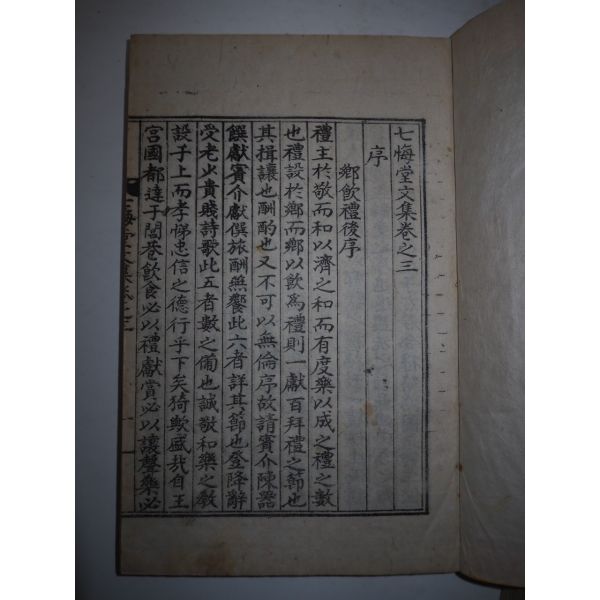 七悔堂文集卷之三
序
鄕飮禮後序
禮主於敬而和以濟之和而有度樂以成之禮之數
也禮設於鄕而鄕以飮爲禮則一獻百拜禮之節也
其揖讓也酬酌也又不可以無倫序故請賓介陳器
饌獻賓介獻僎旅酬無饗此六者詳其節也登降辭
受老少貴賤詩歌此五者數之備也誠敬和樂之敎
設乎上而孝悌忠信之德行乎下矣猗歟盛哉自王
宮國都達于閭巷飮食必以禮獻賞必以讓聲樂必
七悔堂文集卷之三